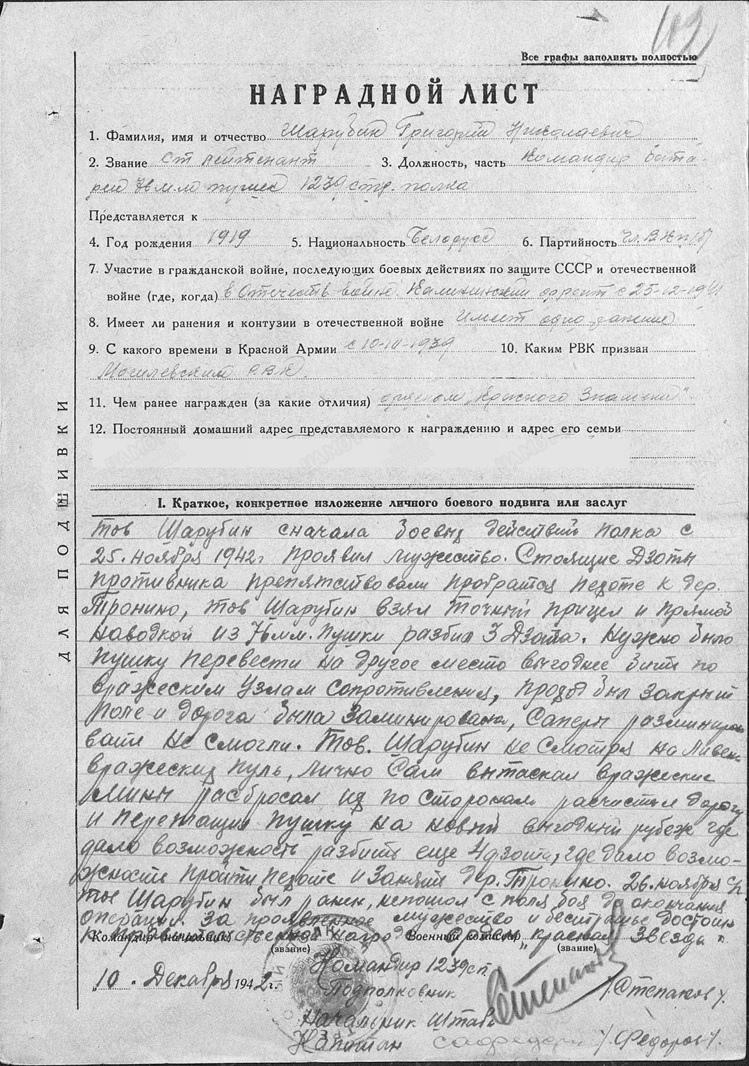 112
Все графы заполнять полностью
НАГРАДНОЙ ЛИСТ
1. Фамилия, имя и отчество Шарубин Григорий Николаевич
2. Звание ст лейтенант 3. Должность, часть Командир бата-
реи 76 м.м пушек 1239 стр. полка
Представляется к
4. Год рождения 1919 5. Национальность Белорусс 6. Партийность Чл. ВКП(б)
7. Участие в гражданской войне, последующих боевых действиях по защите СССР и отечественной
войне (где, когда) в Отечеств войне. Калининский фронт с 25-12-1941
8. Имеет ли ранения и контузии в отечественной войне Имеет одно ранение
9. С какого времени в Красной Армии с 10-III-1939 10. Каким РВК призван
Могилевским Р.В.К.
11. Чем ранее награжден (за какие отличия) орденом „Красного Знамени"
12. Постоянный домашний адрес представляемого к награждению и адрес его семьи
ДЛЯ ПОДШИВКИ
I. Краткое, конкретное изложение личного боевого подвига или заслуг
Тов Шарубин сначала боевых действий полка с
25. ноября 1942г проявил мужество. Стоящие Дзоты
противника препятствовали пробратся пехоте к дер.
Тронино, тов Шарубин взял точный прицел и прямой
наводкой из 76мм. пушки разбил 3 Дзота. Нужно было
пушку перевести на другое место выгоднее бить по
вражеским узлам сопротивления, был закрыт
поле и дорога была заминирована, Саперы разминиро
вать не смогли. Тов. Шарубин не смотря на ливень
вражеских пуль, лично сам вытаскал вражеские
мины разбросал их по сторонам расчистил дорогу
и перетащил пушку на новый выгодный рубеж где
дало возможность разбить еще 4 дзота, где дало возмо-
жность пройти пехоте и занять дер. Тронино. 26. ноября
Шарубин был ранен, непошол с поля боя до окончания
операции. За проявленное мужество и бесстрашье достоин
к правительственной награде Орден „красная Звезда".
Командир-начальник Военный комиссар
(звание) (звание)
„10. Декабря 1942г. Командир 1239 сп
Подполковник Степанов /Степанов/.
Начальник Штаба
Капитан /Федоров/.